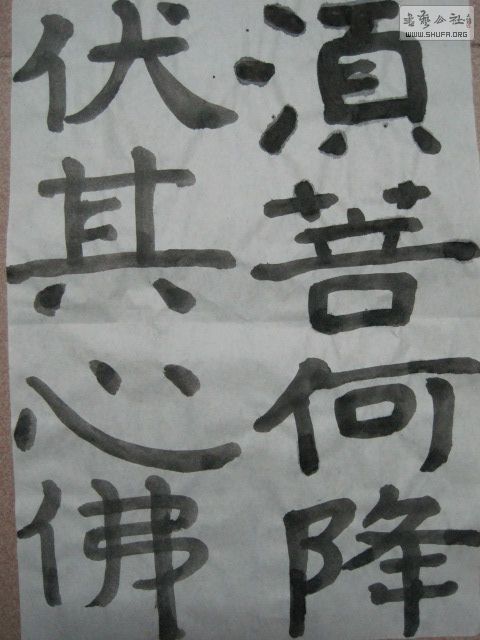 湏菩何降
伏其心佛
書藝公社
WWW.SHUFA.ORG